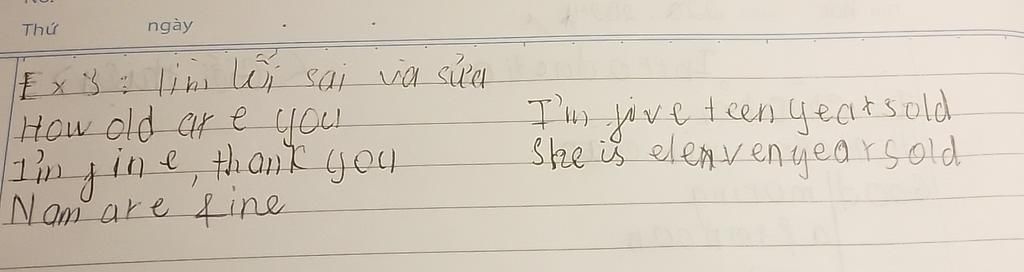 Thứ ngày
Ex 3: Tìm lỗi sai và sửa
How old are you
I'm fine, thank you
Nam are fine
I'm five teen years old
She is elenven years old